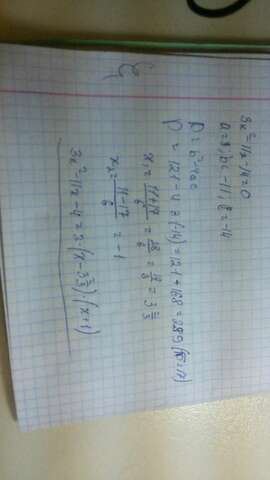 3x²-11x-14=0
a=3, b=-11, c=-14
D=b²-4ac
D=121-4·3·(-14)=121+168=289 (√D=17)
x₁=(11+17)/6=28/6=14/3=3 2/3
x₂=(11-17)/6=-1
3x²-11x-4=3·(x-3 2/3)(x+1)